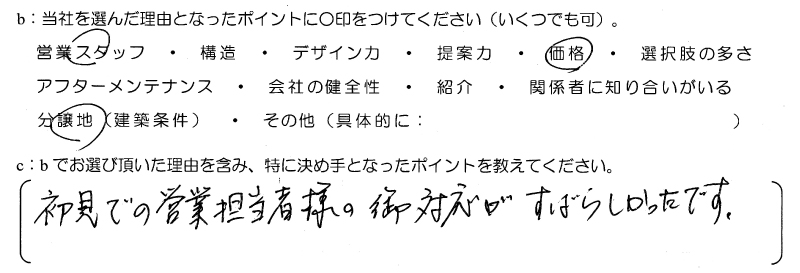 b：当社を選んだ理由となったポイントに〇印をつけてください（いくつでも可）。
営業スタッフ ・ 構造 ・ デザイン力 ・ 提案力 ・ 価格 ・ 選択肢の多さ
アフターメンテナンス ・ 会社の健全性 ・ 紹介 ・ 関係者に知り合いがいる
分譲地（建築条件） ・ その他（具体的に： ）
c：bでお選び頂いた理由を含み、特に決め手となったポイントを教えてください。
初見での営業担当者様の御対応がすばらしかったです。